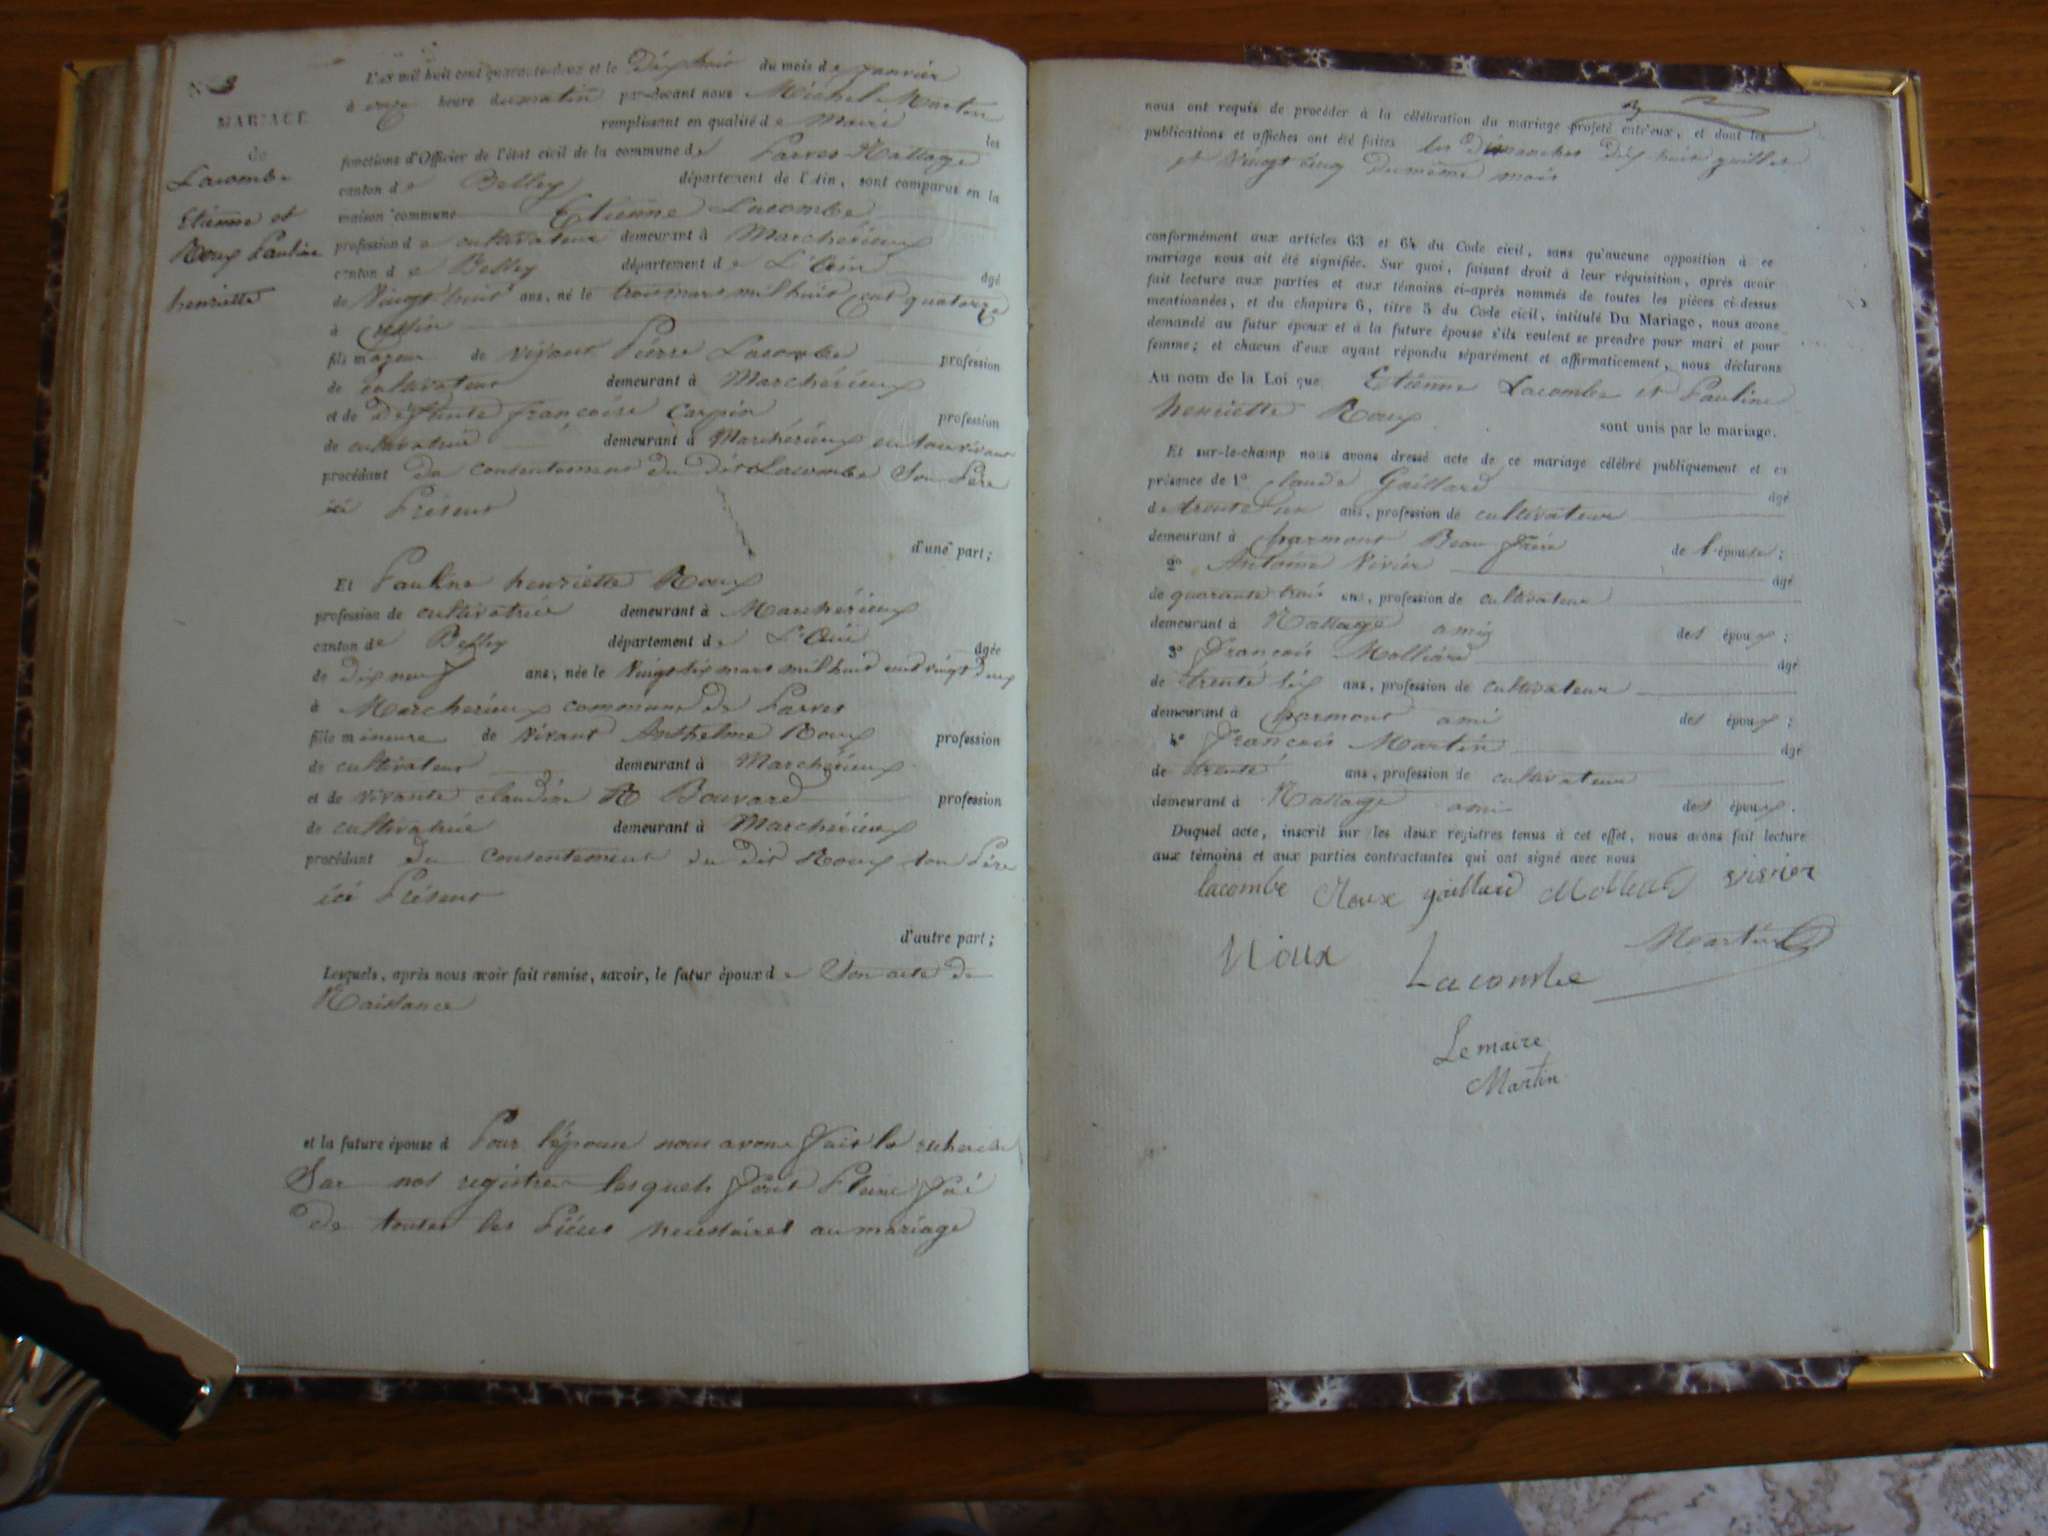 N° 3
MARIAGE
de
Lacombe
Etienne et
Roux Pauline
henriette
L'an mil huit cent quarante-deux et le Dix huit du mois de janvier
à onze heure du matin par-devant nous Michel Martin
remplissant en qualité de Maire les
fonctions d'Officier de l'état civil de la commune de Parves-Nattage
canton de Belley département de l'Ain, sont comparus en la
maison commune Etienne Lacombe
profession de cultivateur demeurant à Marchérieux
canton de Belley département de L'ain âgé
de Vingt huit ans, né le trois mars mil huit cent quatorze
à
fils mageur de vivant Pierre Lacombe profession
de cultivateur demeurant à Marchérieux
et de Défunte françoise Carpin profession
de cultivatrice demeurant à Marchérieux en son vivant
procédant du consentement du dit Lacombe Son Père
ici Présent
d'une part;
Et Pauline henriette Roux
profession de cultivatrice demeurant à Marchérieux
canton de Belley département de L'Ain âgée
de dix neuf ans, née le Vingt six mars mil huit cent vingt deux
à Marcherieux commune de Parves
fille mineure de vivant Anthelme Roux profession
de cultivateur demeurant à Marchérieux
et de vivante claudine Bouvard profession
de cultivatrice demeurant à Marchérieux
procédant du consentement du dit Roux son Père
ici Présent
d'autre part;
Lesquels, après nous avoir fait remise, savoir, le futur époux de Son acte de
Naissance
et la future épouse d Pour l'épouse nous avons fait la recherche
Sur nos registres lesquels font Pleine foi
De toutes les Pièces necessaires au mariage
3
nous ont requis de procéder à la célébration du mariage projeté entr'eux, et dont les
publications et affiches ont été faites les dimanches dix huit juillet
et Vingt cinq du même mois
conformément aux articles 63 et 64 du Code civil, sans qu'aucune opposition à ce
mariage nous ait été signifiée. Sur quoi, faisant droit à leur réquisition, après avoir
fait lecture aux parties et aux témoins ci-après nommés de toutes les pièces ci-dessus
mentionnées, et du chapitre 6, titre 5 du Code civil, intitulé Du Mariage, nous avons
demandé au futur époux et à la future épouse s'ils veulent se prendre pour mari et pour
femme; et chacun d'eux ayant répondu séparément et affirmativement, nous déclarons
Au nom de la Loi que Etienne Lacombe et Pauline
henriette Roux sont unis par le mariage.
Et sur-le-champ nous avons dressé acte de ce mariage célébré publiquement et en
présence de 1° Claude Gaillard âgé
de trente un ans, profession de cultivateur
demeurant à Charmont Beau frère de l'épouse;
2° Antoine Vivier âgé
de quarante trois ans, profession de cultivateur
demeurant à Nattage ami des époux;
3° François Molliard âgé
de trente six ans, profession de cultivateur
demeurant à Charmont ami des époux;
4° François Martin âgé
de trente ans, profession de cultivateur
demeurant à Nattage ami des époux.
Duquel acte, inscrit sur les deux registres tenus à cet effet, nous avons fait lecture
aux témoins et aux parties contractantes qui ont signé avec nous
lacombe Roux gaillard vivier
Martin
Roux Lacombe
Le maire
Martin